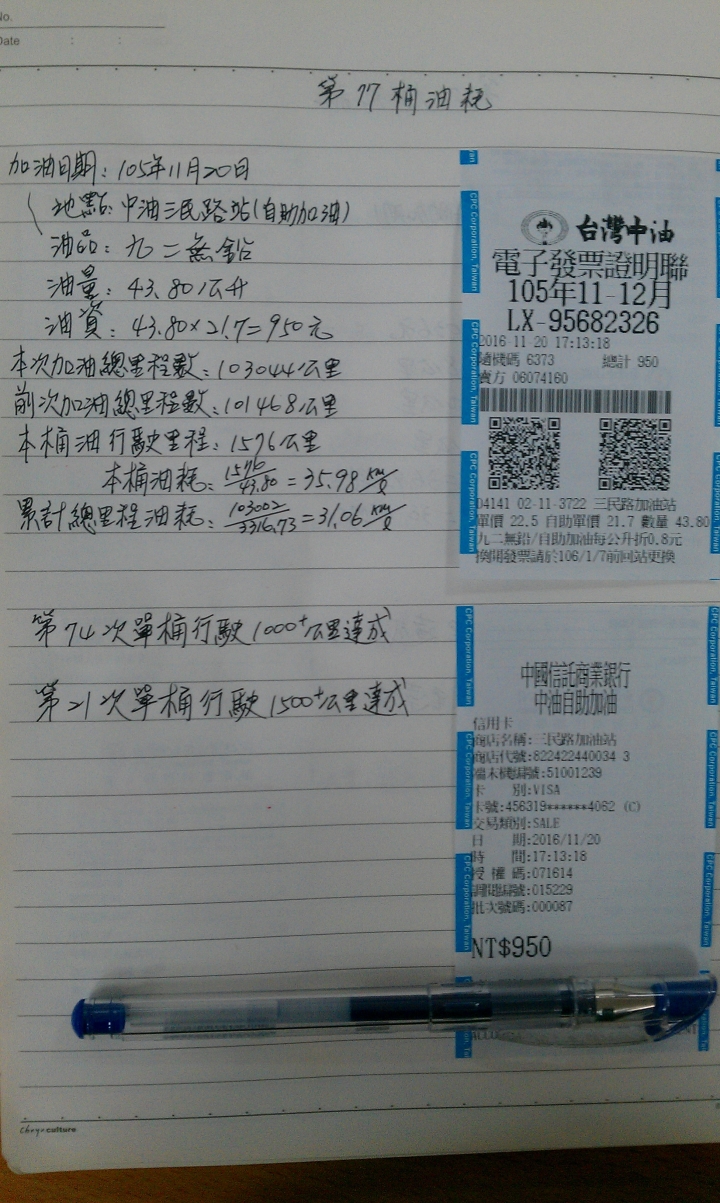 No.
Date : :
第77桶油耗
加油日期：105年11月20日
地點：中油三民路站(自助加油)
油品：九二無鉛
油量：43.80公升
油資：43.80×21.7=950元
本次加油總里程數：103044公里
前次加油總里程數：101468公里
本桶油行駛里程：1576公里
本桶油耗：1576/43.80=35.98 km/
累計總里程油耗：103002/3316.73=31.06 km/
第74次單桶行駛1000⁺公里達成
第21次單桶行駛1500⁺公里達成
台灣中油
電子發票證明聯
105年11-12月
LX-95682326
2016-11-20 17:13:18
隨機碼 6373 總計 950
賣方 06074160
04141 02-11-3722 三民路加油站
單價 22.5 自助單價 21.7 數量 43.80
九二無鉛/自助加油每公升折0.8元
換開發票請於106/1/7前回站更換
中國信託商業銀行
中油自助加油
信用卡
商店名稱:三民路加油站
商店代號:822422440034 3
端末機編號:51001239
卡 別:VISA
卡號:456319******4062 (C)
交易類別:SALE
日 期:2016/11/20
時 間:17:13:18
授權碼:071614
調閱編號:015229
批次號碼:000087
NT$950
CPC Corporation, Taiwan
culture